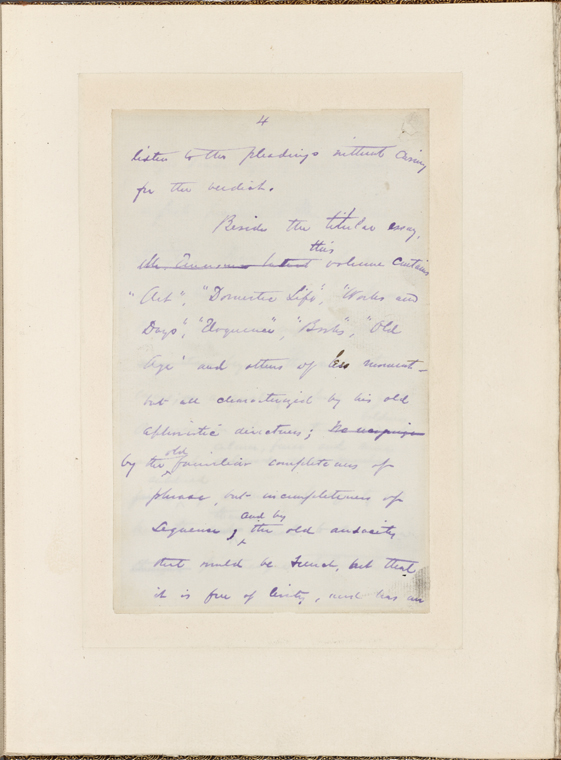 4
listen to the pleadings without caring
for the verdict.
Beside the titular essay,
this
Mr. Emerson's latest volume contains
"Art", "Domestic Life", "Works and
Days", "Eloquence", "Books", "Old
Age" and others of less moment—
but all characterized by his old
aphoristic directness;
old
by the familiar completeness of
phrase, but incompleteness of
and by
sequence; the old audacity
that would be French, but that
it is free of levity, and has an